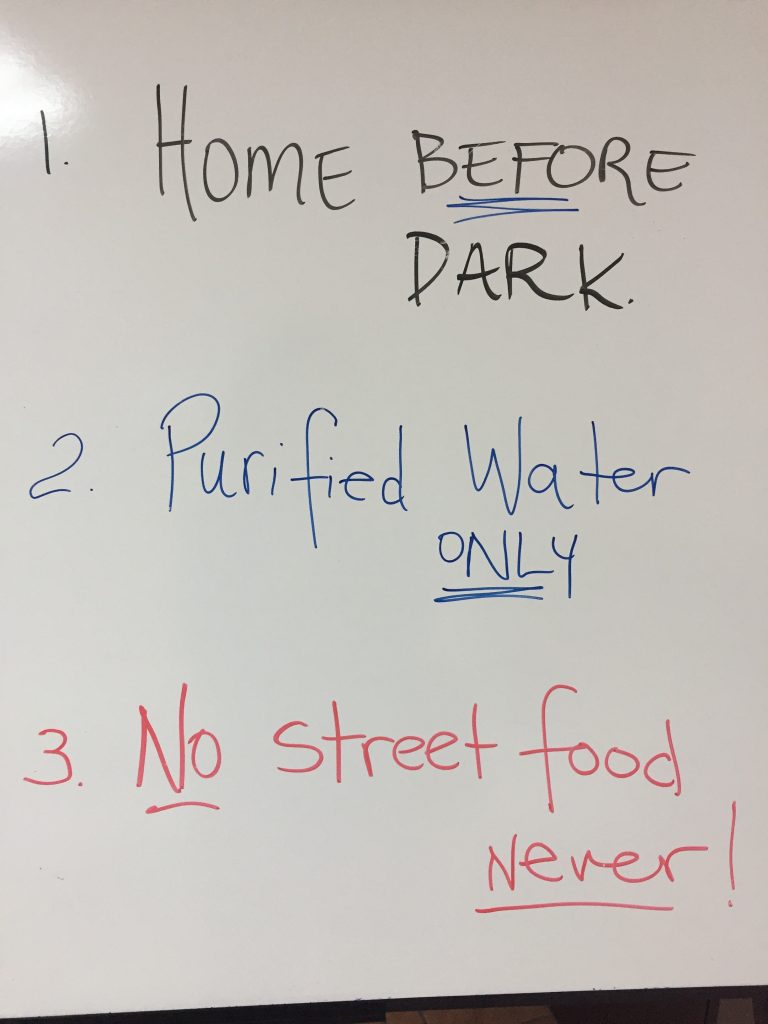 1. HOME BEFORE
DARK.
2. Purified Water
ONLY
3. No street food
Never!